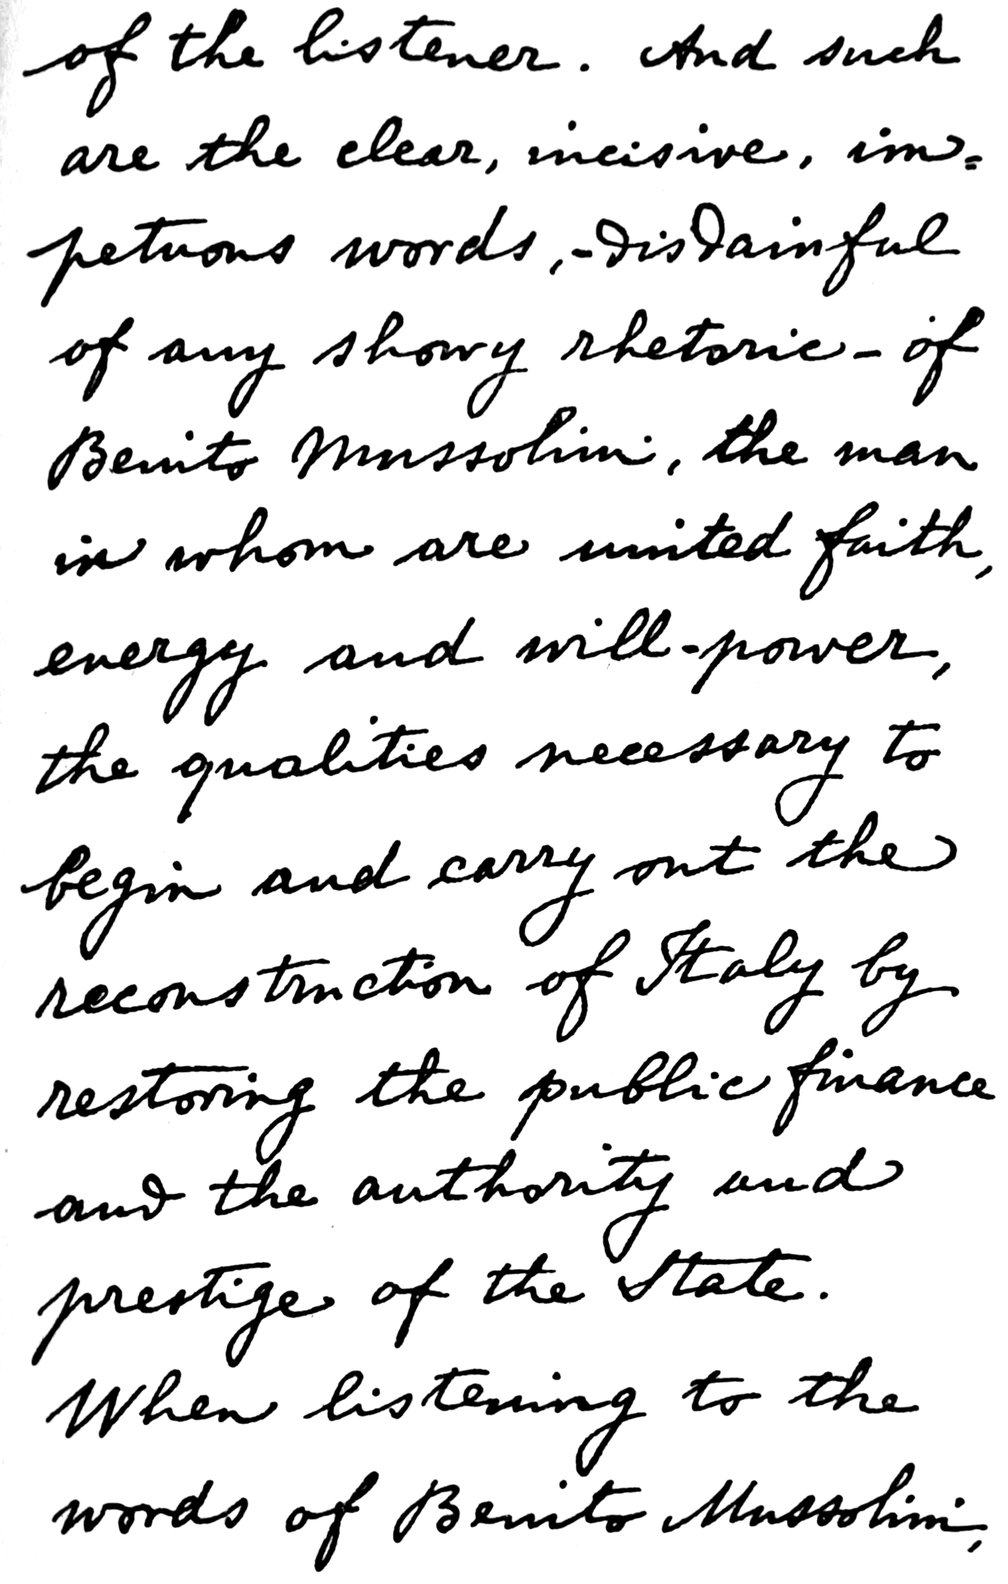 of the listener. And such
are the clear, incisive, im=
petuous words,-disdainful
of any showy rhetoric - of
Benito Mussolini, the man
in whom are united faith,
energy and will-power,
the qualities necessary to
begin and carry out the
reconstruction of Italy by
restoring the public finance
and the authority and
prestige of the State.
When listening to the
words of Benito Mussolini,